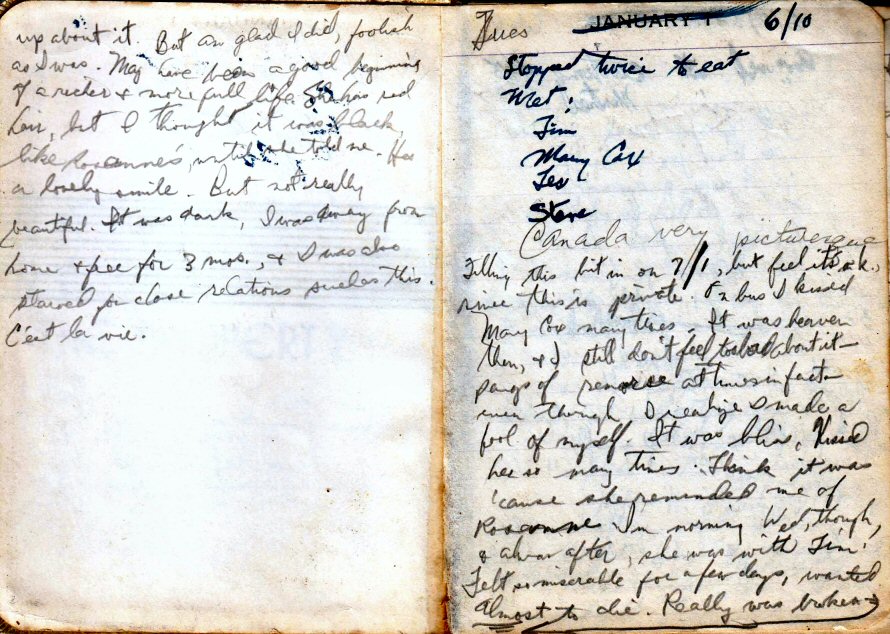 up about it. But am glad I did, foolish
as I was. May have been a good beginning
of a richer & more full life. She has red
hair, but I thought it was black,
like Roseanne's, until she told me. Has
a lovely smile. But not really
beautiful. It was dark, I was away from
home & free for 3 mos., & I was also
starved for close relations such as this.
C'est la vie.
Tues JANUARY 1 6/10
Stopped twice to eat
Met:
Jim
Mary Cox
Les
Steve
Canada very picturesque
Filling this bit in on 7/1, but feel it's o.k.,
since this is private. On bus I kissed
Mary Cox many times. It was heaven
then, & I still don't feel too bad about it—
pangs of remorse at times in fact—
even though I realize I made a
fool of myself. It was bliss, kissed
her so many times. Think it was
'cause she reminded me of
Roseanne. In morning Wed, though,
& after, she was with Jim.
Felt so miserable for a few days, wanted
almost to die. Really was broken→